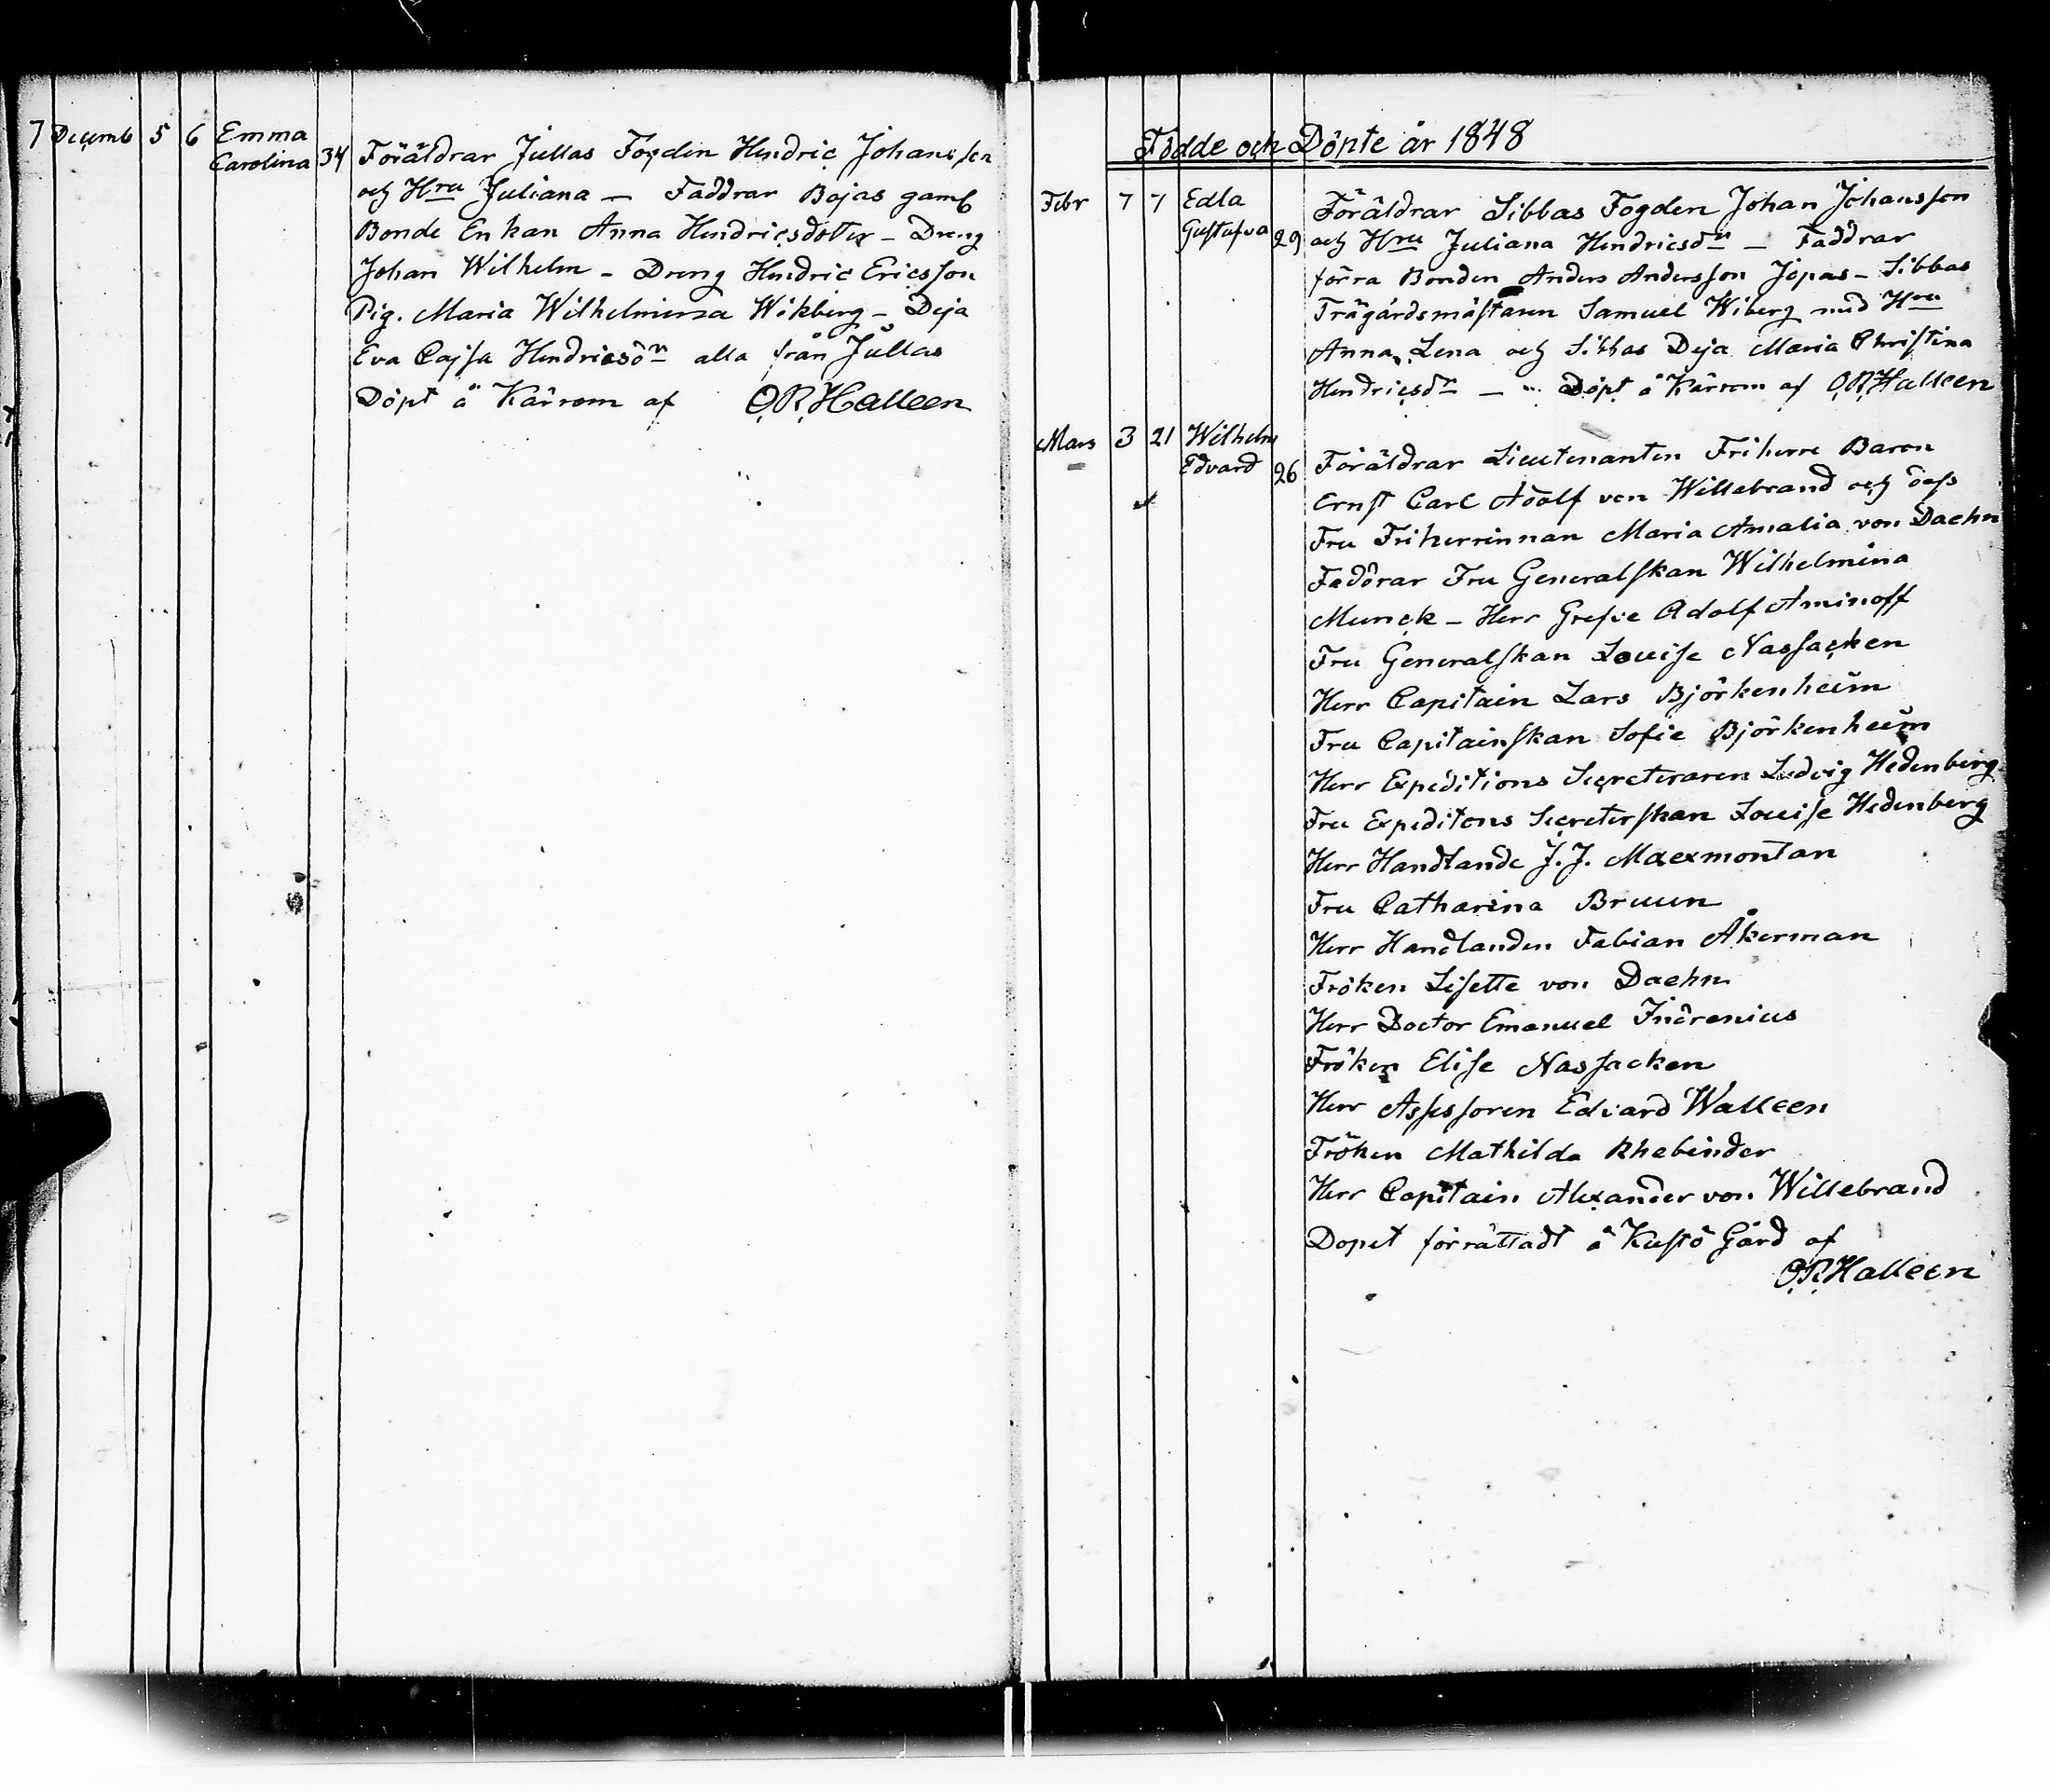 7 Decemb 5 6 Emma
Carolina 34 Föräldrar Jullas Fogden Hendric Johansson
och Hru Juliana — Faddrar Bojas gaml
Bonde Enkan Anna Hendricsdotter – Dreng
Johan Wilhelm – Dreng Hendric Ericsson
Pig. Maria Wilhelmina Wikberg – Deja
Eva Cajsa Hendricsdr alla från Jullas
Döpt å Kärrom af O.R.Halleen
Födde och Döpte år 1848
Febr 7 7 Edla
Gustafva 29 Föräldrar Sibbas Fogden Johan Johansson
och Hru Juliana Hendricsdr — Faddrar
förra Bonden Anders Andersson Jopas – Sibbas
Trägårdsmästaren Samuel Wiberg med Hru
Anna Lena och Sibbas Deja Maria Christina
Hendricsdr — Döpt å Kärrom af O.R.Halleen
Mars 3 21 Wilhelm
Edvard 26 Föräldrar Lieutenanten Friherre Baron
Ernst Carl Adolf von Willebrand och dess
Fru Friherrinnan Maria Amalia von Daehn
Faddrar Fru Generalskan Wilhelmina
Munck – Herr Grefve Adolf Aminoff
Fru Generalskan Louise Nassacken
Herr Capitain Lars Björkenheim
Fru Capitainskan Sofie Björkenheim
Herr Expeditions Secreteraren Ludvig Hedenberg
Fru Expeditons Secreterskan Louise Hedenberg
Herr Handlande J.J. Maexmontan
Fru Catharina Bruun
Herr Handlanden Fabian Åkerman
Fröken Lisette von Daehn
Herr Doctor Emanuel Indrenius
Fröken Elise Nassacken
Herr Assessoren Edvard Walleen
Fröken Mathilda Rhebinder
Herr Capitain Alexander von Willebrand
Dopet förrättadt å Kustö Gård af
O.R.Halleen